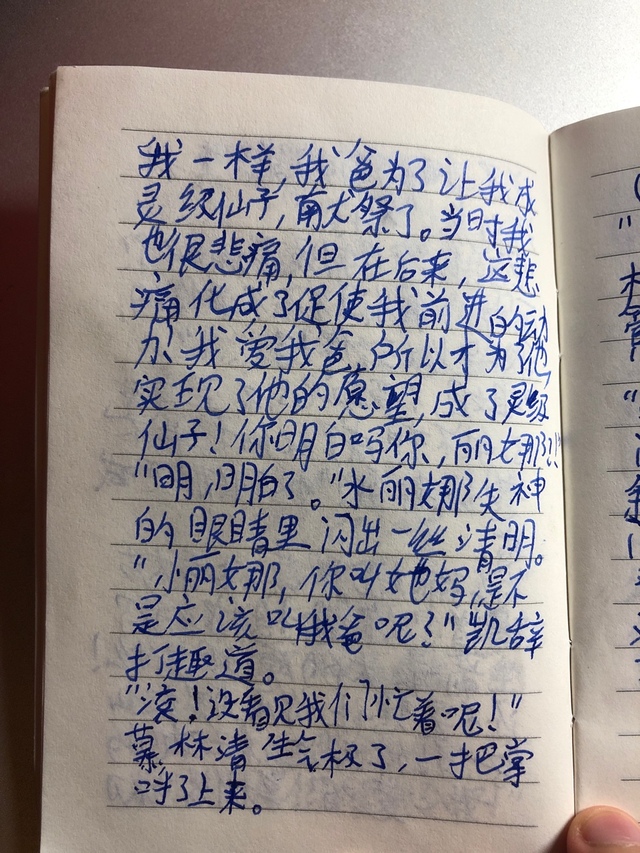 我一样,我爸为了让我成
灵级仙子,献祭了。当时我
也很悲痛,但在后来,这悲
痛化成了促使我前进的动
力,我爱我爸,所以才为了他,
实现了他的愿望,成了灵级
仙子!你明白吗你,丽娜!?"
"明,明白了。"水丽娜失神
的眼睛里闪出一丝清明。
"小丽娜,你叫她妈,是不
是应该叫我爸呢?"凯辞
打趣道。
"滚!没看见我们忙着呢!"
慕林清生气极了,一把掌
呼了上来。
(
"
"